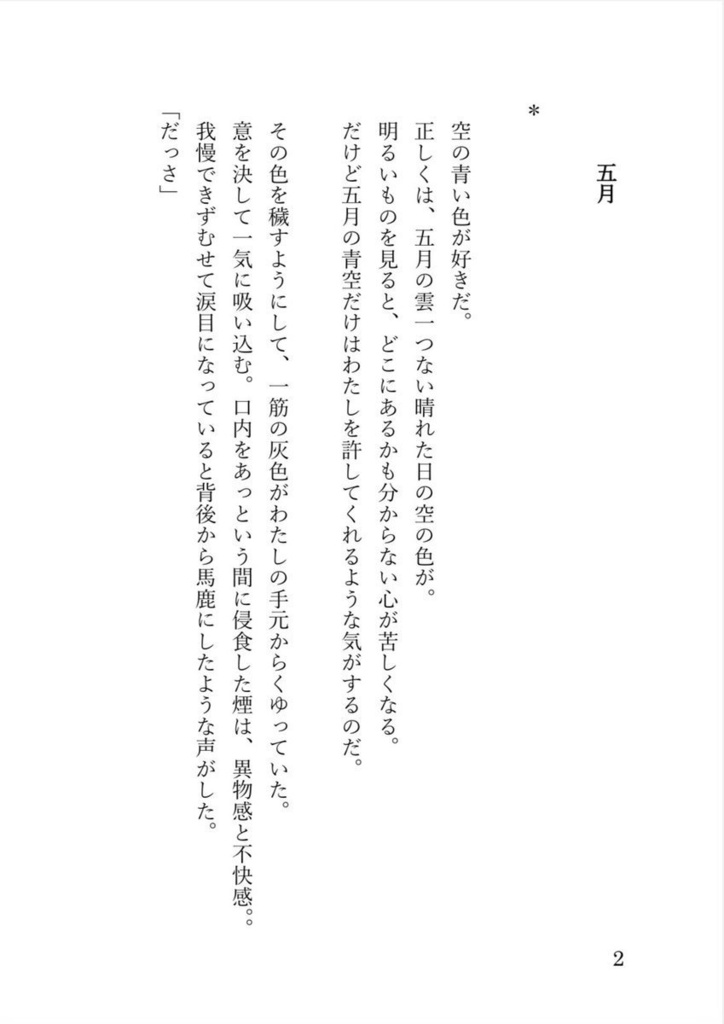 五月
*
空の青い色が好きだ。
正しくは、五月の雲一つない晴れた日の空の色が。
明るいものを見ると、どこにあるかも分からない心が苦しくなる。
だけど五月の青空だけはわたしを許してくれるような気がするのだ。
その色を穢すようにして、一筋の灰色がわたしの手元からくゆっていた。
意を決して一気に吸い込む。口内をあっという間に侵食した煙は、異物感と不快感。。
我慢できずむせて涙目になっていると背後から馬鹿にしたような声がした。
「だっさ」
2